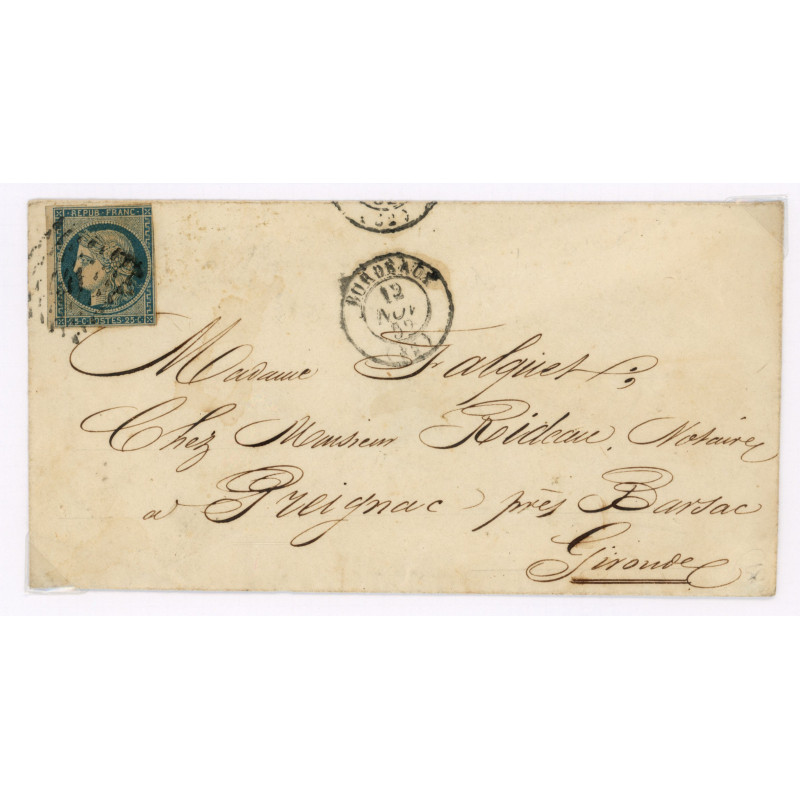 REPUB·FRANC·
BORDEAUX
12
NOV
52
(32)
Madame Falguet,
Chez Monsieur Rideau, Notaire
a Preignac près Barsac
Gironde